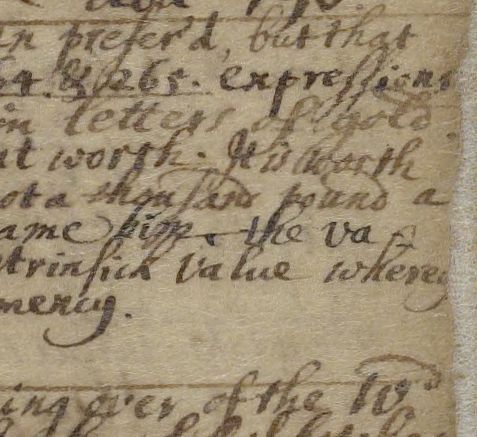 n prefer'd, but that
64. & 265. expressions
in letters of gold.
nt worth. It is worth
ot a thousand pound a
ame the va=
trinsick value where
mency.
ing over of the Wd